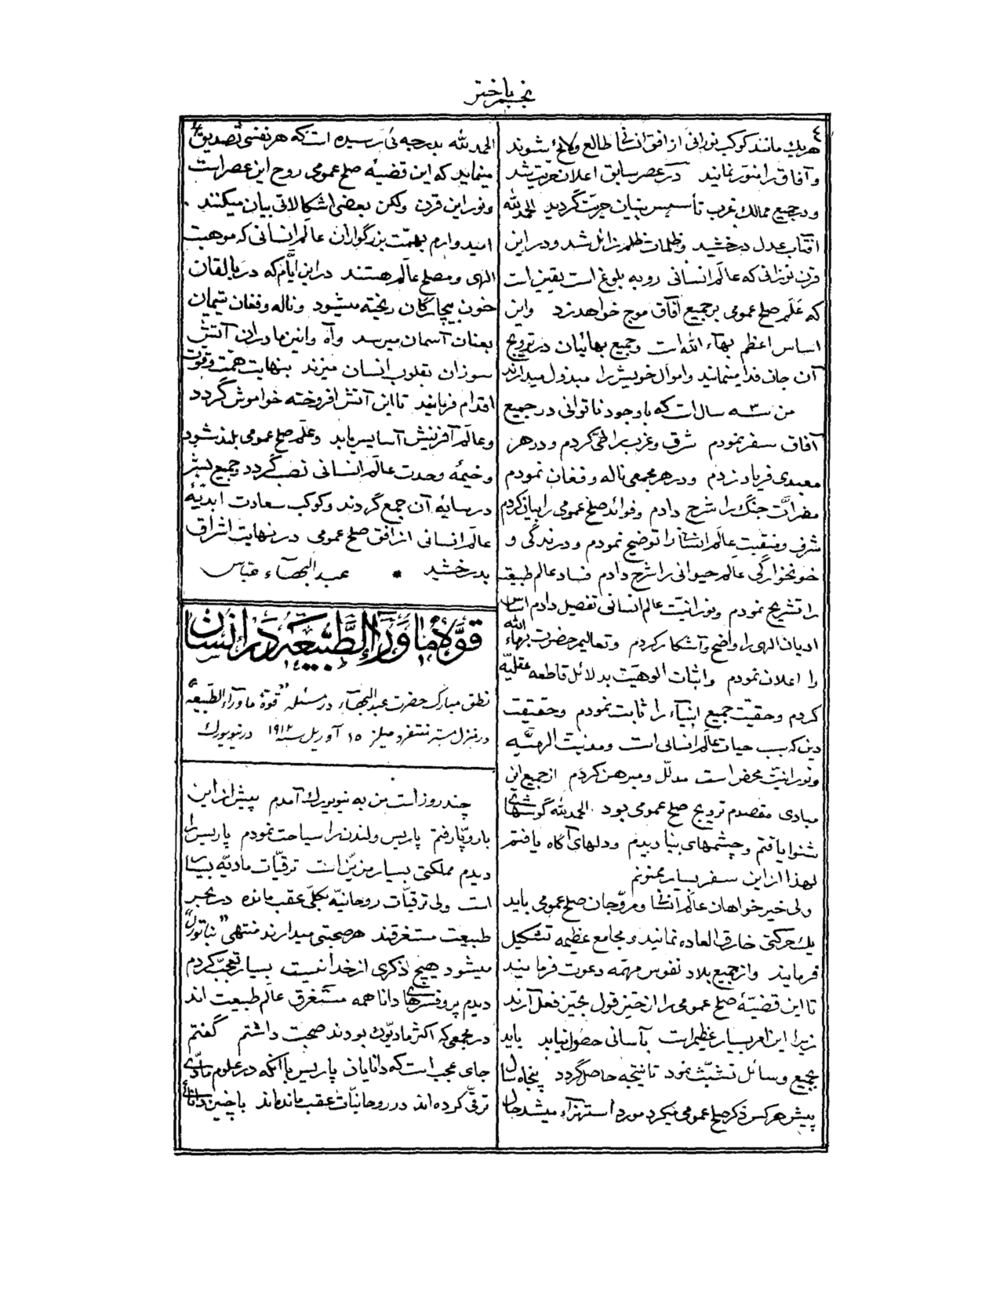 نجم باختر
٤
هر یك مانند كوكب نورانی از افق انسانی طالع و لائح شوند
و آفاق را منور نمایند در عصر سابق اعلان حریت شد
و در جمیع ممالك غرب تأسیس بنیان حریت گردید الحمد لله
آفتاب عدل درخشید و ظلمات ظلم زائل شد و در این
قرن نورانی كه عالم انسانی رو به بلوغ است یقین است
كه علم صلح عمومی بر جمیع آفاق موج خواهد زد و این
اساس اعظم بهاء الله است و جمیع بهائیان در ترویج
آن جان فدا مینمایند و اموال خویش را مبذول میدارند
من سه سال است كه با وجود ناتوانی در جمیع
آفاق سفر نمودم شرق و غرب را طی كردم و در هر
معبدی فریاد زدم و در هر مجمعی ناله و فغان نمودم
مضرات جنگ را شرح دادم و فوائد صلح عمومی را بیان كردم
شرف و منقبت عالم انسانی را توضیح نمودم و درندگی و
خونخوارگی عالم حیوانی را شرح دادم فساد عالم طبیعت
را تشریح نمودم و نورانیت عالم انسانی تفصیل دادم اساس
ادیان الهی را واضح و آشكار كردم و تعالیم حضرت بهاء الله
را اعلان نمودم و اثبات الوهیت بدلائل قاطعه عقلیه
كردم و حقیت جمیع انبیاء را ثابت نمودم و حقیقت
دین كه سبب حیات عالم انسانی است و مدنیت الهیه
و نورانیت محض است مدلل و مبرهن كردم از جمیع این
مبادی مقصدم ترویج صلح عمومی بود الحمد لله گوشهای
شنوا یافتم و چشمهای بینا دیدم و دلهای آگاه یافتم
لهذا از این سفر بسیار ممنونم
ولی خیرخواهان عالم انسانی و مروجان صلح عمومی باید
یك حركتی خارق العاده نمایند و مجامع عظیمه تشكیل
فرمایند و از جمیع بلاد نفوس مهمه دعوت فرمایند
تا این قضیهٔ صلح عمومی را از حیز قول بحیز فعل آرند
زیرا این امر بسیار عظیم است بآسانی حصول نیابد باید
بجمیع وسائل تشبث نمود تا نتیجه حاصل گردد پنجاه سال
پیش هر كس ذكر صلح عمومی میكرد مورد استهزاء میشد حال
الحمد لله بدرجه ئی رسیده است كه هر نفسی تصدیق
مینماید كه این قضیهٔ صلح عمومی روح این عصر است
و نور این قرن ولكن بعضی اشكالاتی بیان میكنند .
امیدوارم بهمت بزرگواران عالم انسانی كه موهبت
الهی و مصلح عالم هستند در این ایام كه در بالقان
خون بیچارگان ریخته میشود و ناله و فغان یتیمان
بعنان آسمان میرسد و آه و انین مادران آتش
سوزان بقلوب انسان میزند بنهایت همت و قوت
اقدام فرمایند تا این آتش افروخته خاموش گردد
و عالم آفرینش آسایش یابد و علم صلح عمومی بلند شود
و خیمهٔ وحدت عالم انسانی نصب گردد و جمیع بشر
در سایهٔ آن جمع گردند و كوكب سعادت ابدیهٔ
عالم انسانی از افق صلح عمومی در نهایت اشراق
بدرخشید * عبد البهاء عباس
قوّهٔ ما وراء الطّبیعه در انسان
نطق مبارك حضرت عبد البهاء در مسئله "قوهٔ ما وراء الطبیعه"
در منزل مستر منتفرد میلز ١٥ آوریل سنه ١٩١٢ در نیویورك
چند روز است من به نیویورك آمدم پیش از این
باروپا رفتم پاریس و لندن را سیاحت نمودم پاریس را
دیدم مملكتی بسیار مزین است ترقیات مادیه بسیار
است ولی ترقیات روحانیه بكلی عقب مانده در بحر
طبیعت مستغرقند هر صحبتی میدارند منتهی "بناتور"
میشود هیچ ذكری از خدا نیست بسیار تعجب كردم
دیدم پروفسرهای دانا همه مستغرق عالم طبیعت اند
در مجمعی كه اكثر مادیون بودند صحبت داشتم گفتم
جای عجب است كه دانایان پاریس با آنكه در علوم مادی
ترقی كرده اند در روحانیات عقب مانده اند با چنین دانائی